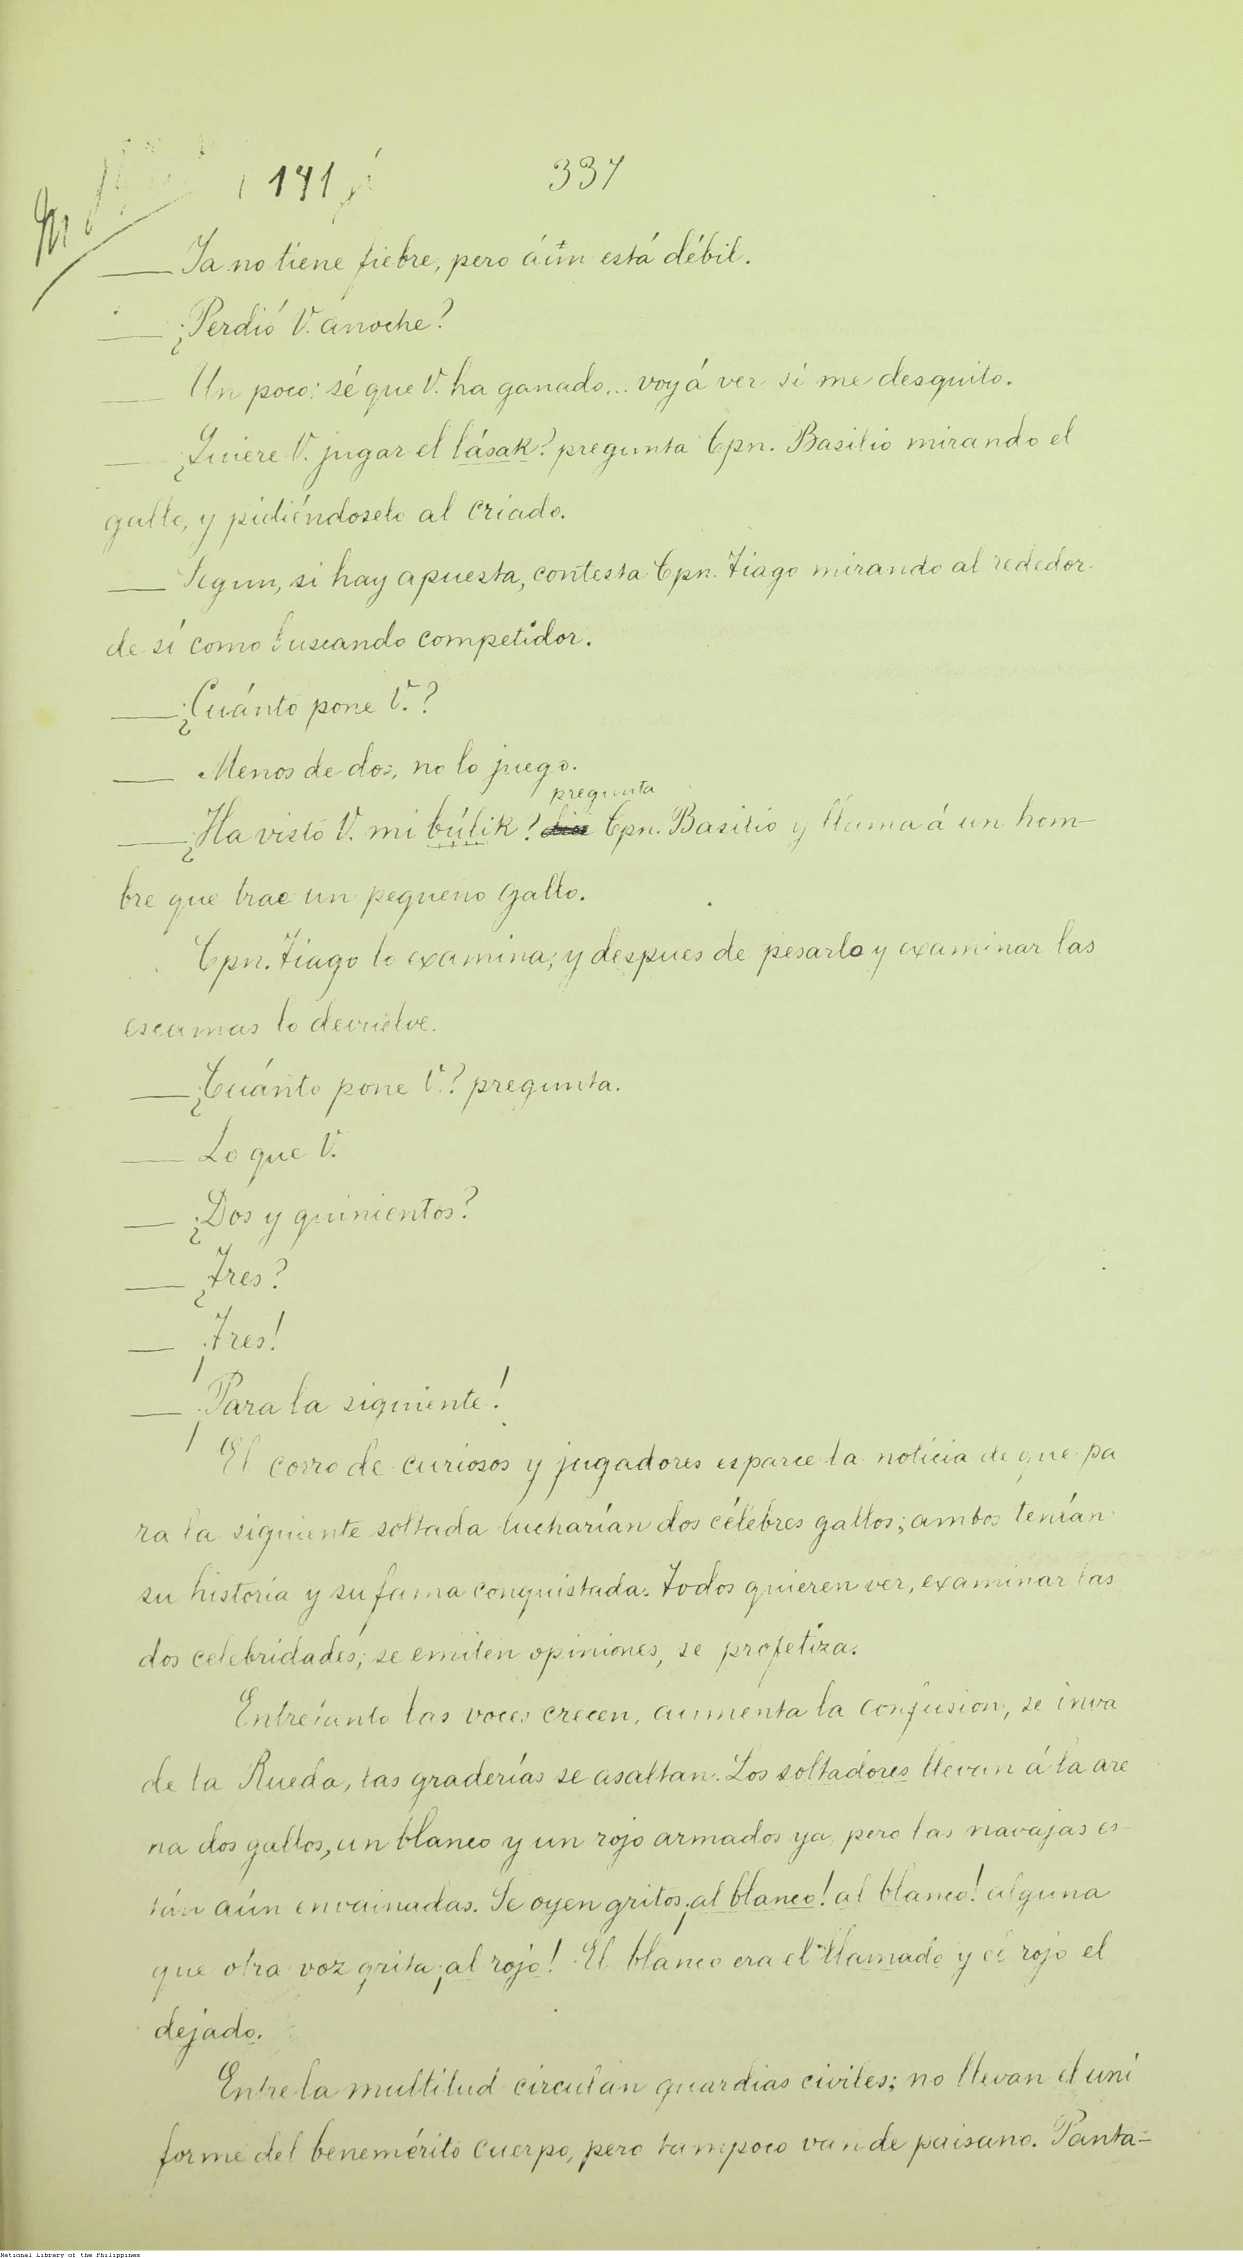 141 337
— Ya no tiene fiebre, pero áun está débil.
— ¿Perdió V. anoche?
— Un poco: sé que V. ha ganado... voy á ver si me desquito.
— ¿Quiere V. jugar el lásak? pregunta Cpn. Basilio mirando el
gallo, y pidiéndoselo al criado.
— Segun, si hay apuesta, contesta Cpn. Tiago mirando al rededor
de sí como buscando competidor.
— ¿Cuánto pone V.?
— Menos de dos, no lo juego.
pregunta
— ¿Ha visto V. mi búlik? Cpn. Basilio y llama á un hom-
bre que trae un pequeno gallo.
Cpn. Tiago lo examina, y despues de pesarlo y examinar las
escamas lo devuelve.
— ¿Cuánto pone V.? pregunta.
— Lo que V.
— ¿Dos y quinientos?
— ¿Tres?
— ¡Tres!
— ¡Para la siguiente!
El corro de curiosos y jugadores esparce la noticia de que pa
ra la siguiente soltada lucharían dos célebres gallos; ambos tenían
su historia y su fama conquistada. Todos quieren ver, examinar las
dos celebridades; se emiten opiniones, se profetiza.
Entretanto las voces crecen, aumenta la confusion, se inva
de la Rueda, las graderías se asaltan. Los soltadores llevan á la are
na dos gallos, un blanco y un rojo armados ya, pero las navajas es-
tán aún envainadas. Se oyen gritos ¡al blanco! al blanco! alguna
que otra voz grita ¡al rojo! El blanco era el llamado y el rojo el
dejado.
Entre la multitud circulan guardias civiles; no llevan el uni
forme del benemérito cuerpo, pero tampoco van de paisano. Panta-
National Library of the Philippines